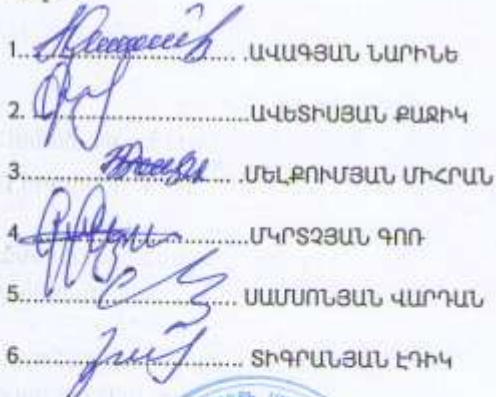 1. ԱՎԱԳՅԱՆ ՆԱՐԻՆԵ
2. ԱՎԵՏԻՍՅԱՆ ՔԱՋԻԿ
3. ՄԵԼՔՈՒՄՅԱՆ ՄԻՀՐԱՆ
4. ՄԿՐՏՉՅԱՆ ԳՈՌ
5. ՍԱՄՍՈՆՅԱՆ ՎԱՐԴԱՆ
6. ՏԻԳՐԱՆՅԱՆ ԷԴԻԿ